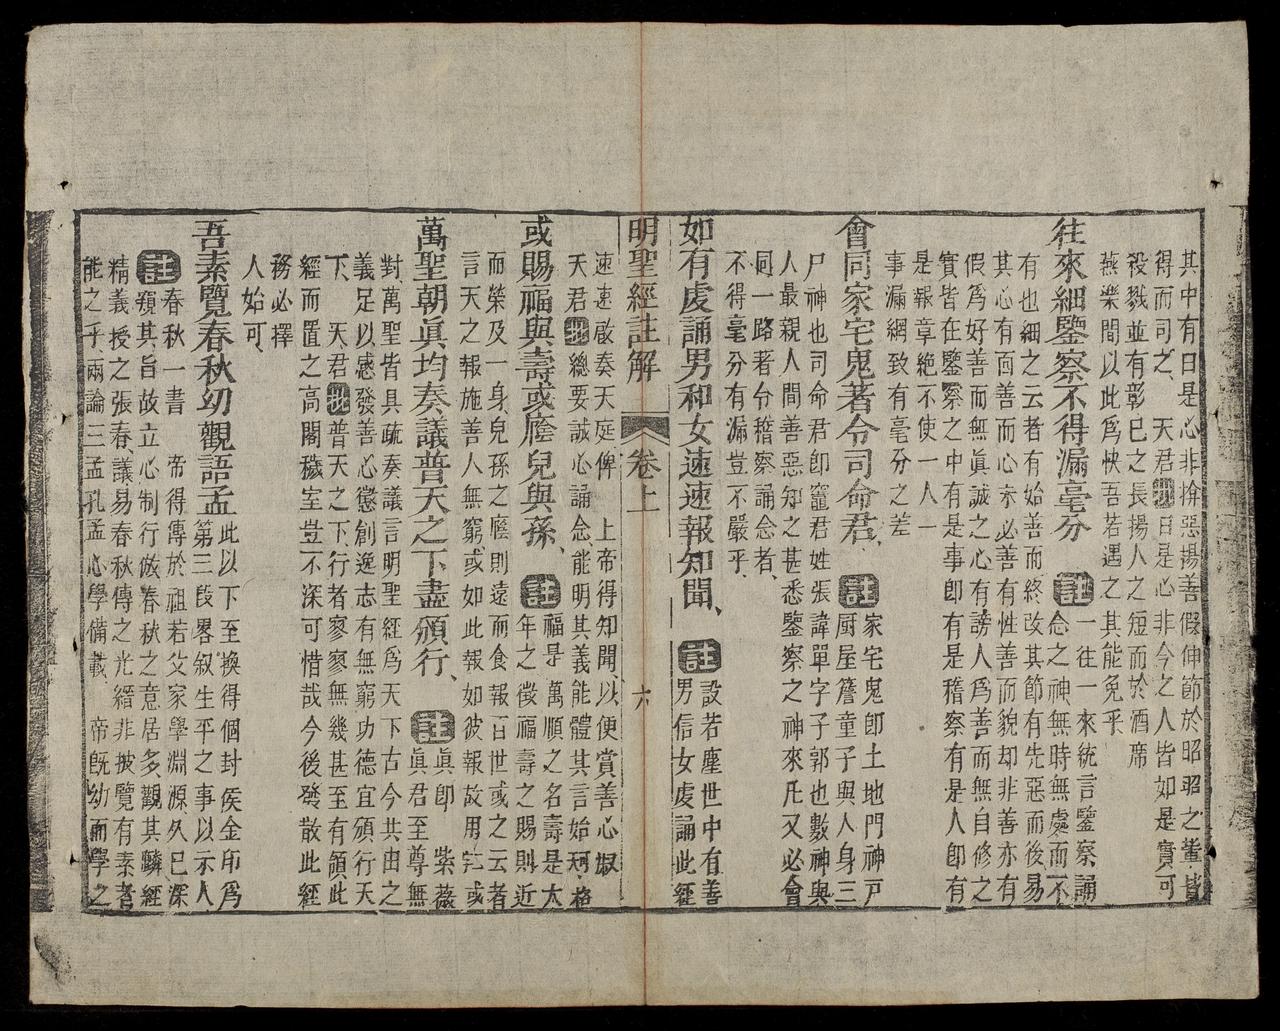 其中有日是心非揜惡揚善假伸節於昭昭之董皆
得而司之、　天君曰是心非今之人皆如是實可
役戮並有彰已之長揚人之短而於酒席
燕樂間以此爲快吾若遇之其能免乎
往來細鑒察不得漏毫分註一往一來統言鑒察誦
念之神無時無處而不
有也細之云者有始善而終改其節有先惡而後易
其心有面善而心亦必善有性善而貌却非善亦有
假爲好善而無眞誠之心有謗人爲善而無自修之
實皆在鑒察之中有是事卽有是稽察有是人卽有
是報章絶不使一人一
事漏網致有毫分之差
會同家宅鬼著令司命君、註家宅鬼卽土地門神戸
厨屋簷童子與人身三
尸神也司命君卽竈君姓張諱單字子郭也數神與
人最親人間善惡知之甚悉鑒察之神來凡又必會
同一路著台稽察誦念者、
不得毫分有漏豈不嚴乎、
如有處誦男和女速速報知聞、註設若塵世中有善
男信女處誦此經
明聖經註解　卷上　六
速速啟奏天庭俾　上帝得知聞、以便賞善心
天君總要誠心誦念、能明其義能體其言始格
或賜福與壽或廕兒與孫、註福是萬順之名壽是太
年之徵福壽之賜則近
而榮及一身、兒孫之廕則遠而食報百世或之云者
言天之報施善人無窮或如此報如彼報故用或
萬聖朝眞均奏議普天之下盡頒行、註眞卽　紫薇
眞君至尊無
對萬聖皆具疏奏議言明聖經爲天下古今共由之
義足以感發善心懲創逸志有無窮功德宜頒行天
下、　天君普天之下、行者寥寥無幾甚至有領此
經而置之高閣穢室豈不深可惜哉今後發散此經
務必擇
人始可、
吾素覽春秋幼觀語孟此以下至換得個封矦金印爲
第三段畧叙生平之事以示人
註春秋一書　帝得傳於祖若父家學淵源、久已深
窺其旨故立心制行倣春秋之意居多、觀其麟經
精義授之張春、議易春秋傳之光縉非披覽有素者
能之乎、兩論三孟孔孟心學備載、　帝旣幼而學之